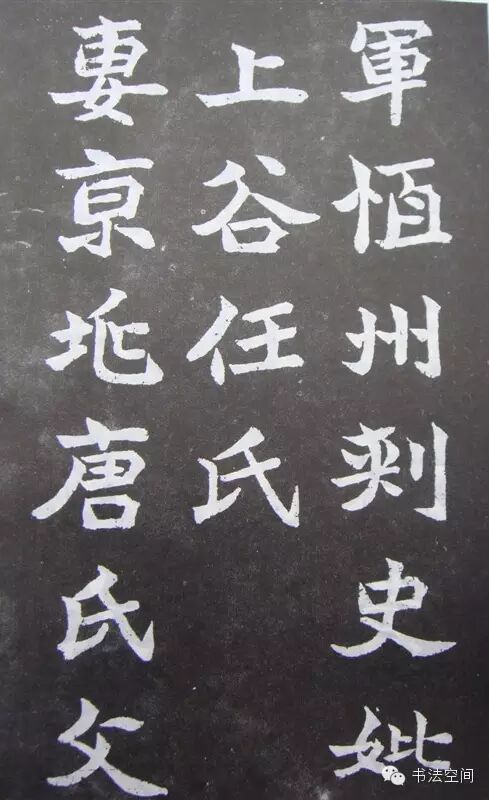 軍恒州刾史妣
上谷任氏
妻京兆唐氏父
书法空间